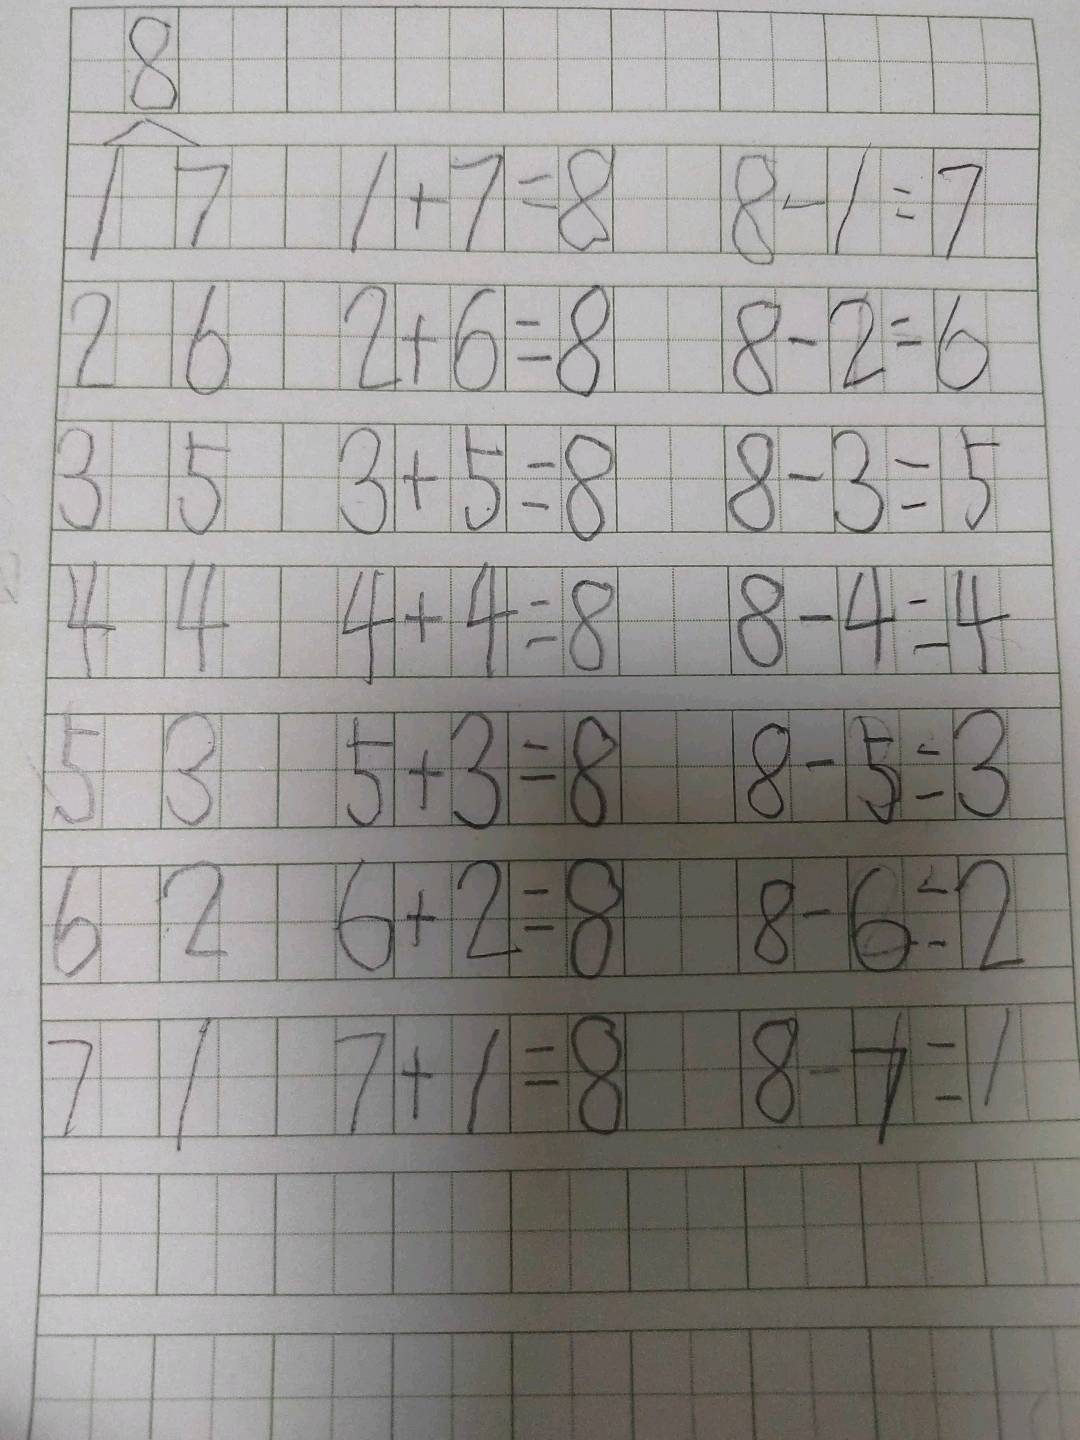 8
1 7 1+7=8 8-1=7
2 6 2+6=8 8-2=6
3 5 3+5=8 8-3=5
4 4 4+4=8 8-4=4
5 3 5+3=8 8-5=3
6 2 6+2=8 8-6=2
7 1 7+1=8 8-7=1